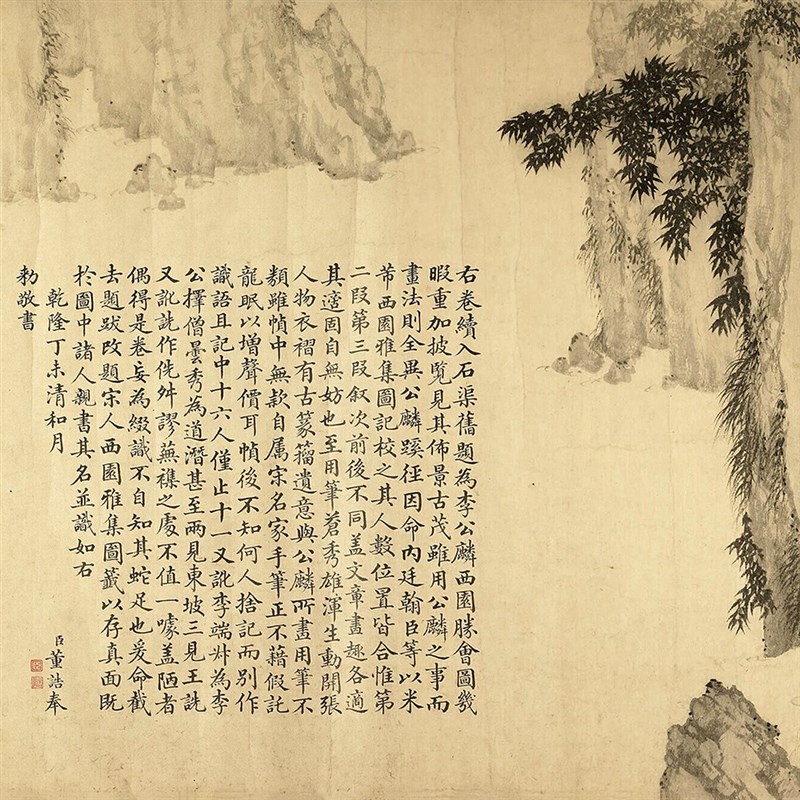 右卷續入石渠舊題為李公麟西園勝會圖幾
暇重加披覽見其佈景古茂雖用公麟之事而
畫法則全異公麟蹊徑因命內廷翰臣等以米
芾西園雅集圖記校之其人數位置皆合惟第
二段第三段敘次前後不同盖文章畫趣各適
其適固自無妨也至用筆蒼秀雄渾生動開張
人物衣褶有古篆籀遺意與公麟所畫用筆不
類雖幀中無款自属宋名家手筆正不藉假託
龍眠以增聲價耳幀後不知何人捨記而别作
識語且記中十六人僅止十一又訛李端叔為李
公擇僧曇秀為道潛甚至兩見東坡三見王詵
又訛詵作侁舛謬蕪襍之處不值一噱盖陋者
偶得是卷妄為綴識不自知其蛇足也爰命截
去題跋改題宋人西園雅集圖籤以存真面既
於圖中諸人親書其名並識如右
乾隆丁未清和月
臣董誥奉
勅敬書